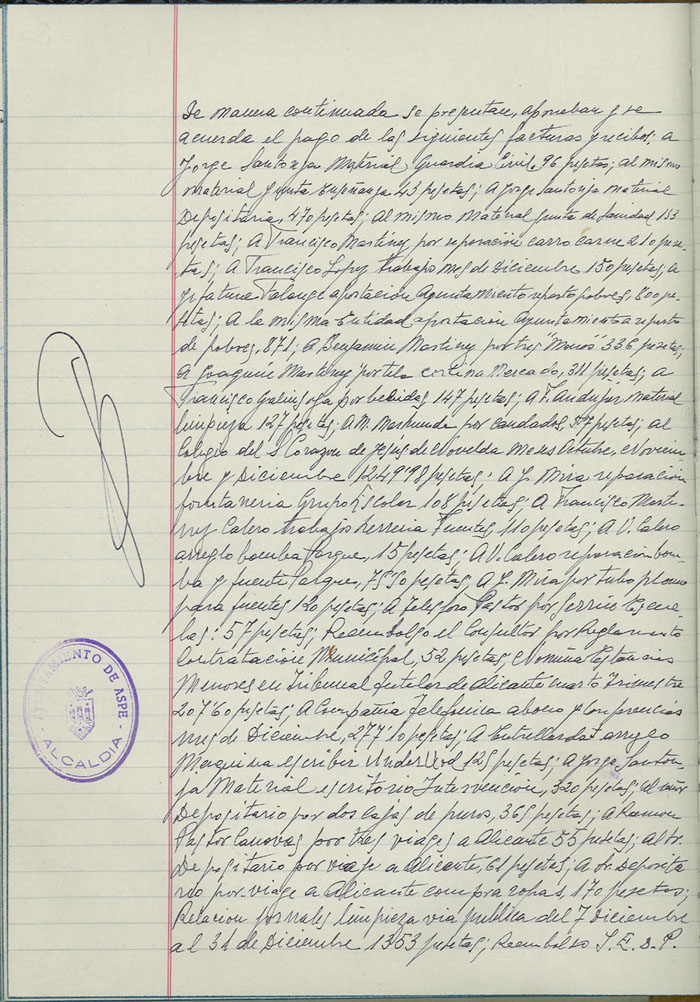 De manera continuada se presentan, aprueban y se
acuerda el pago de las siguientes facturas y recibos: a
Jorge Santonja Material Guardia Civil, 96 pesetas; al mismo
material Junta Enseñanza 43 pesetas; A Jorge Santonja material
Depositaria, 470 pesetas; al mismo Material Junta de Sanidad 153
pesetas; A Francisco Martinez por reparación carro carne 210 pese-
tas; A Francisco Lopez trabajo mes de Diciembre 150 pesetas, a
Jefatura Falange aportación Ayuntamiento reparto pobres, 800 pe-
setas; A la misma Entidad aportación Ayuntamiento a reparto
de pobres, 871; a Benjamin Martinez por tres 336 pesetas;
A Joaquin Martinez por tela cortina Mercado, 311 pesetas; a
Francisco Galinsoga por bebidas 147 pesetas; A F. Andujar material
limpieza 127 pesetas; A M. por candados, 57 pesetas; al
Colegio del S. Corazon de Jesús de Novelda meses Octubre, Noviem-
bre y Diciembre 1249'98 pesetas; A J. Mira reparación
fontaneria Grupo Escolar 108 pesetas; A Francisco Marti-
nez Calero trabajos herreria Fuentes, 110 pesetas; A V. Calero
arreglo bomba Parque, 15 pesetas; A V. Calero reparación bom-
ba y fuente Parque, 75'50 pesetas; A J. Mira por tubo plomo
para fuentes 120 pesetas; A Telesforo Pastor por Serrin Escue-
las: 57 pesetas; Reembolso el Consultor por Reglamento
Contratación Municipal, 52 pesetas; Nómina Estancias
Menores en Tribunal Tutelar de Alicante cuarto Trimestre
207'60 pesetas; A Compañia Telefonica abono y Conferencias
mes de Diciembre, 277'10 pesetas; A arreglo
Maquina escribir Underwod 125 pesetas; A Jorge Santon-
ja Material escritorio Intervención, 320 pesetas; al señor
Depositario por dos cajas de puros, 365 pesetas; a Ramon
Pastor Canovas por tres viages a Alicante 55 pesetas; Al Sr.
Depositario por viage a Alicante, 61 pesetas; A Sr. Deposita-
rio por viage a Alicante compra ropas, 170 pesetas;
Relacion jornales limpieza via publica del 7 Diciembre
al 31 de Diciembre 1353 pesetas; Reembolso
AYUNTAMIENTO DE ASPE
ALCALDIA